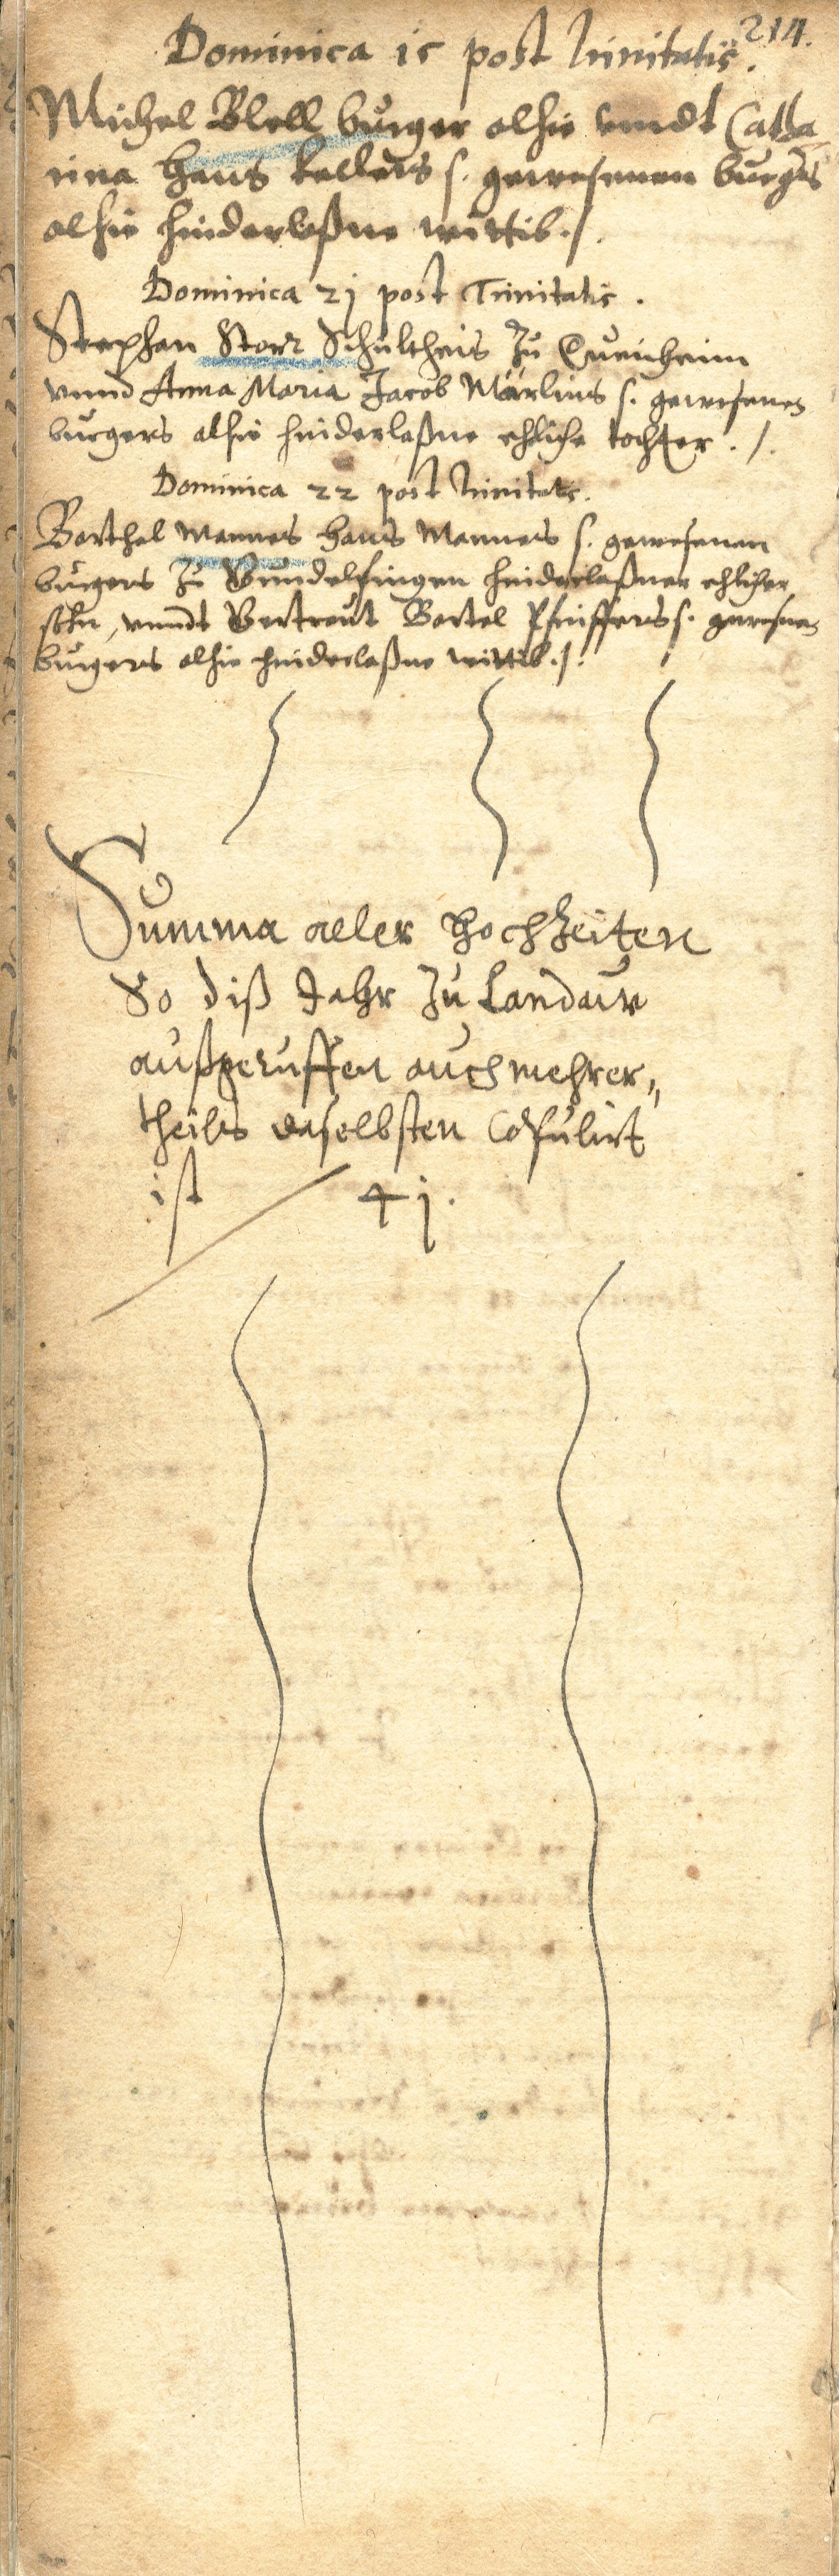 214.
Dominica 15 post Trinitatis.
Michel Blell burger alhie vnndt Catha
rina Hans Kellers s. gewesenen burgers
alhie hinderlaßne wittib ./.
Dominica 21 post Trinitatis .
Stephan Storr Schultheis zu Queicheim
vnnd Anna Maria Jacob Märlins s. gewesenen
burgers alhie hinderlaßne ehliche tochter ./.
Dominica 22 post Trinitatis.
Barthel Manners Hans Manners s. gewesenen
burgers zu Gundelfingen hinderlaßner ehlicher
sohn, vnndt Gertraut Bartel Pfeiffers s. gewesnen
burgers alhie hinderlaßne wittib ./.
Summa aller Hochzeiten
So diß Jahr zu Landaw
außgeruffen auch mehrer„
theils daselbsten Copulirt
ist 41.